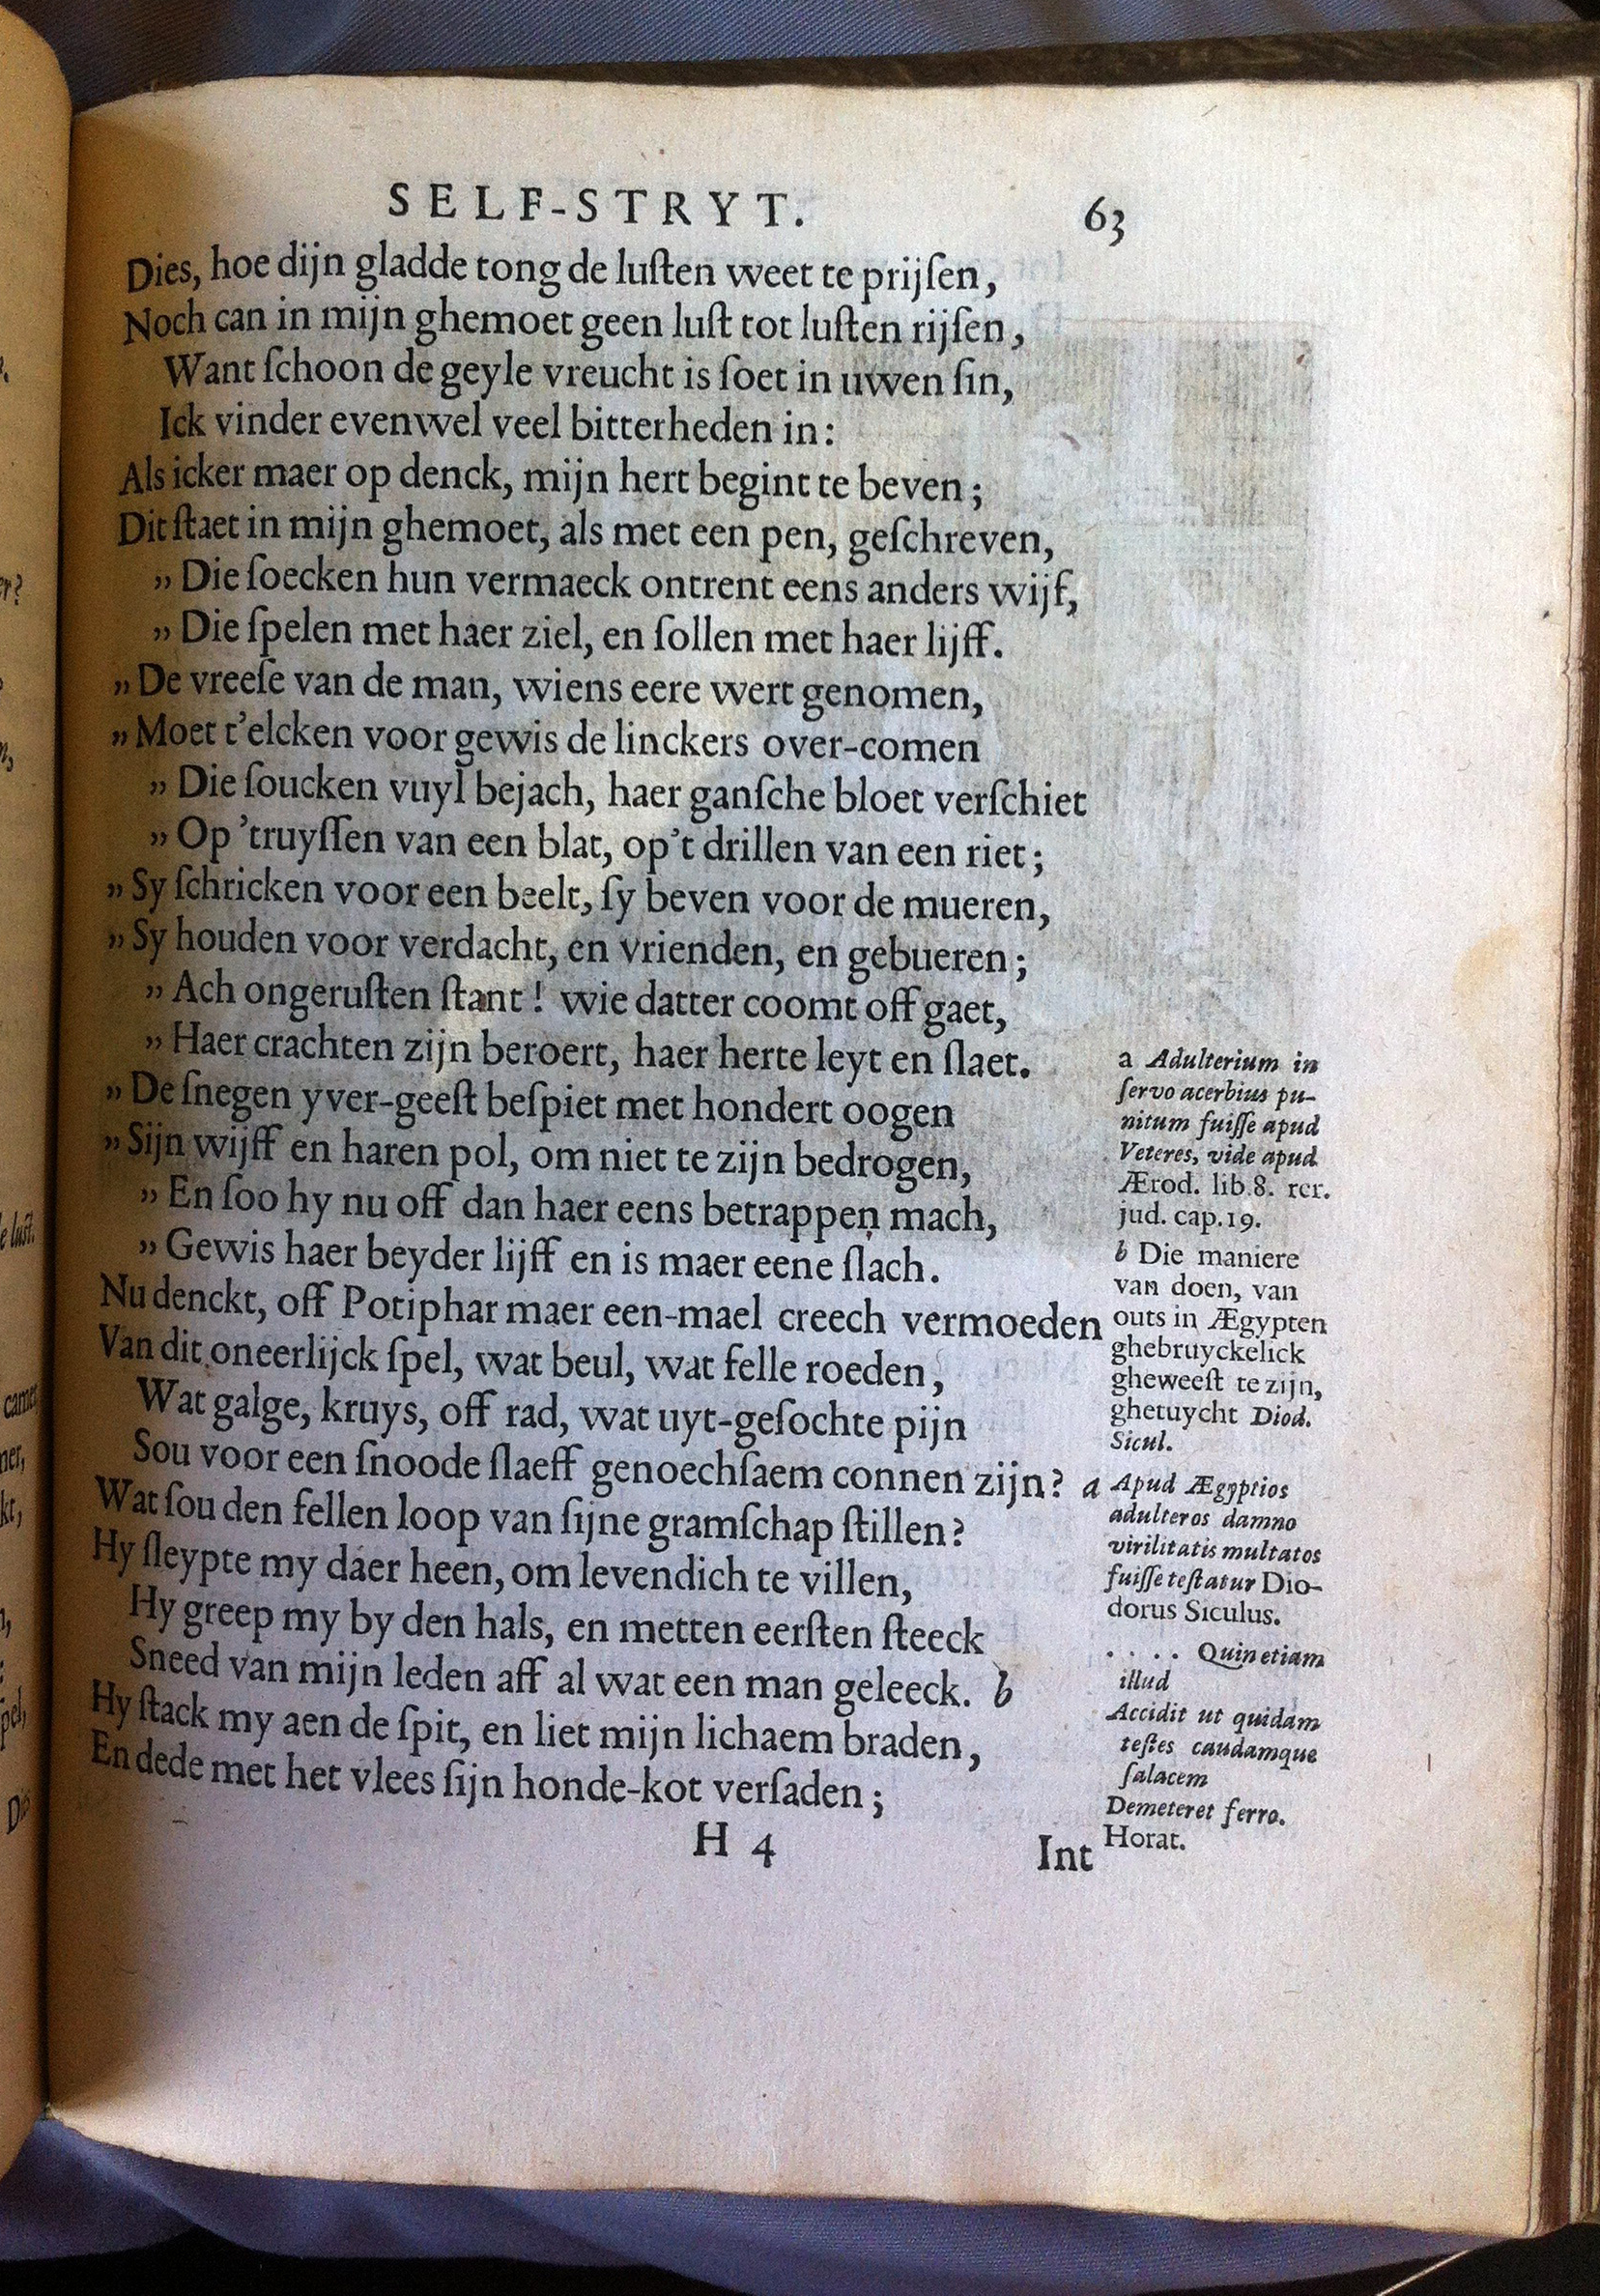 SELF-STRYT. 63
Dies, hoe dijn gladde tong de luſten weet te prijſen,
Noch can in mijn ghemoet geen luſt tot luſten rijſen,
Want ſchoon de geyle vreucht is ſoet in uwen ſin,
Ick vinder evenwel veel bitterheden in:
Als icker maer op denck, mijn hert begint te beven;
Dit ſtaet in mijn ghemoet, als met een pen, geſchreven,
„ Die ſoecken hun vermaeck ontrent eens anders wijf,
„ Die ſpelen met haer ziel, en ſollen met haer lijff.
„ De vreeſe van de man, wiens eere wert genomen,
„ Moet t'elcken voor gewis de linckers over-comen
„ Die ſoucken vuyl bejach, haer ganſche bloet verſchiet
„ Op 'truyſſen van een blat, op't drillen van een riet;
„ Sy ſchricken voor een beelt, ſy beven voor de mueren,
„ Sy houden voor verdacht, en vrienden, en gebueren;
„ Ach ongeruſten ſtant! wie datter coomt off gaet,
„ Haer crachten zijn beroert, haer herte leyt en ſlaet.
„ De ſnegen yver-geeſt beſpiet met hondert oogen
„ Sijn wijff en haren pol, om niet te zijn bedrogen,
„ En ſoo hy nu off dan haer eens betrappen mach,
„ Gewis haer beyder lijff en is maer eene ſlach.
Nu denckt, off Potiphar maer een-mael creech vermoeden
Van dit oneerlijck ſpel, wat beul, wat felle roeden,
Wat galge, kruys, off rad, wat uyt-geſochte pijn
Sou voor een ſnoode ſlaeff genoechſaem connen zijn? a
Wat ſou den fellen loop van ſijne gramſchap ſtillen?
Hy ſleypte my daer heen, om levendich te villen,
Hy greep my by den hals, en metten eerſten ſteeck
Sneed van mijn leden aff al wat een man geleeck. b
Hy ſtack my aen de ſpit, en liet mijn lichaem braden,
En dede met het vlees ſijn honde-kot verſaden;
H 4 Int
a Adulterium in
ſervo acerbius pu-
nitum fuiſſe apud
Veteres, vide apud
Ærod. lib.8. rer.
jud. cap.19.
b Die maniere
van doen, van
outs in Ægypten
ghebruyckelick
gheweeſt te zijn,
ghetuycht Diod.
Sicul.
Apud Ægyptios
adulteros damno
virilitatis multatos
fuiſſe teſtatur Dio-
dorus Siculus.
. . . . Quin etiam
illud
Accidit ut quidam
teſtes caudamque
ſalacem
Demeteret ferro.
Horat.